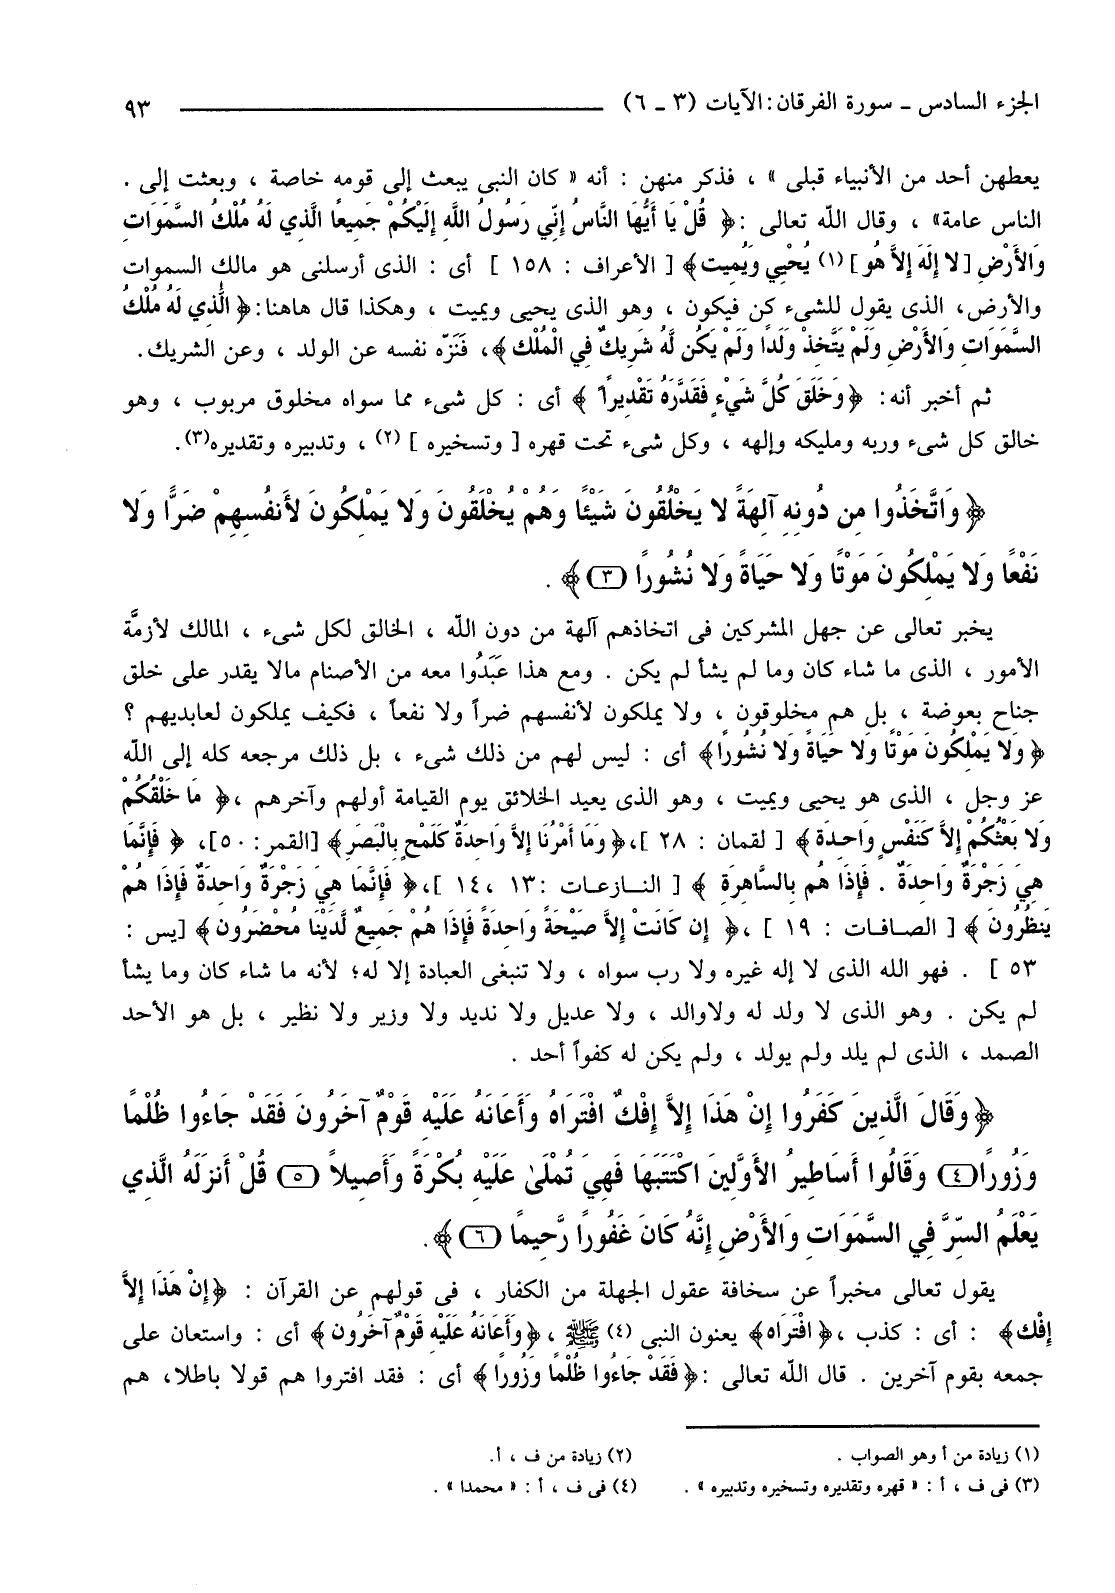 الجزء السادس ـ سورة الفرقان: الآيات (٣ ـ ٦) ٩٣
يعطهن أحد من الأنبياء قبلى » ، فذكر منهن : أنه « كان النبى يبعث إلى قومه خاصة ، وبعثت إلى .
الناس عامة» ، وقال الله تعالى :﴿ قُلْ يَا أَيُّهَا النَّاسُ إِنِّي رَسُولُ اللَّهِ إِلَيْكُمْ جَمِيعًا الَّذِي لَهُ مُلْكُ السَّمَوَاتِ
وَالأَرْضِ [لا إِلَهَ إِلاَّ هُو ](١) يُحْيِي وَيُمِيت﴾ [ الأعراف : ١٥٨ ] أى : الذى أرسلنى هو مالك السموات
والأرض، الذى يقول للشىء كن فيكون ، وهو الذى يحيى ويميت ، وهكذا قال هاهنا:﴿ الَّذِي لَهُ مُلْكُ
السَّمَوَاتِ وَالأَرْضِ وَلَمْ يَتَّخِذْ وَلَدًا وَلَمْ يَكُن لَّهُ شَرِيكٌ فِي الْمُلْك ﴾، فَنَزّه نفسه عن الولد ، وعن الشريك.
ثم أخبر أنه: ﴿وَخَلَقَ كُلَّ شَيْءٍ فَقَدَّرَهُ تَقْدِيرًا ﴾ أى : كل شىء مما سواه مخلوق مربوب ، وهو
خالق كل شىء وربه ومليكه وإلهه ، وكل شىء تحت قهره [ وتسخيره ] (٢) ، وتدبيره وتقديره(٣).
﴿ وَاتَّخَذُوا مِن دُونِهِ آلِهَةً لا يَخْلُقُونَ شَيْئًا وَهُمْ يُخْلَقُونَ وَلا يَمْلِكُونَ لأَنفُسِهِمْ ضَرًّا وَلا
نَفْعًا وَلا يَمْلِكُونَ مَوْتًا وَلا حَيَاةً وَلا نُشُورًا (٣)﴾ .
يخبر تعالى عن جهل المشركين فى اتخاذهم آلهة من دون الله ، الخالق لكل شىء ، المالك لأزمَّة
الأمور ، الذى ما شاء كان وما لم يشأ لم يكن . ومع هذا عَبَدُوا معه من الأصنام مالا يقدر على خلق
جناح بعوضة ، بل هم مخلوقون ، ولا يملكون لأنفسهم ضراً ولا نفعاً ، فكيف يملكون لعابديهم ؟
﴿ وَلا يَمْلِكُونَ مَوْتًا وَلا حَيَاةً وَلا نُشُورًا﴾ أى : ليس لهم من ذلك شىء ، بل ذلك مرجعه كله إلى الله
عز وجل ، الذى هو يحيى ويميت ، وهو الذى يعيد الخلائق يوم القيامة أولهم وآخرهم ،﴿ مَا خَلْقُكُمْ
وَلا بَعْثُكُمْ إِلاَّ كَنَفْسٍ وَاحِدَة ﴾ [ لقمان : ٢٨ ]،﴿ وَمَا أَمْرُنَا إِلاَّ وَاحِدَةٌ كَلَمْحٍ بِالْبَصَرِ ﴾ [القمر: ٥٠]، ﴿ فَإِنَّمَا
هِيَ زَجْرَةٌ وَاحِدَةٌ . فَإِذَا هُم بِالسَّاهِرَةِ ﴾ [ النـازعـات :١٣ ،١٤ ]،﴿ فَإِنَّمَا هِيَ زَجْرَةٌ وَاحِدَةٌ فَإِذَا هُمْ
يَنظُرُونَ ﴾ [ الصـافـات : ١٩ ] ،﴿ إِن كَانَتْ إِلاَّ صَيْحَةً وَاحِدَةً فَإِذَا هُمْ جَمِيعٌ لَّدَيْنَا مُحْضَرُون ﴾ [يس :
٥٣ ] . فهو الله الذى لا إله غيره ولا رب سواه ، ولا تنبغى العبادة إلا له؛ لأنه ما شاء كان وما يشأ
لم يكن . وهو الذى لا ولد له ولاوالد ، ولا عديل ولا نديد ولا وزير ولا نظير ، بل هو الأحد
الصمد ، الذى لم يلد ولم يولد ، ولم يكن له كفواً أحد .
﴿ وَقَالَ الَّذِينَ كَفَرُوا إِنْ هَذَا إِلاَّ إِفْكٌ افْتَرَاهُ وَأَعَانَهُ عَلَيْهِ قَوْمٌ آخَرُونَ فَقَدْ جَاءُوا ظُلْمًا
وَزُورًا(٤) وَقَالُوا أَسَاطِيرُ الأَوَّلِينَ اكْتَتَبَهَا فَهِيَ تُمْلَىٰ عَلَيْهِ بُكْرَةً وَأَصِيلاً (٥) قُلْ أَنزَلَهُ الَّذِي
يَعْلَمُ السِّرَّ فِي السَّمَوَاتِ وَالأَرْضِ إِنَّهُ كَانَ غَفُورًا رَّحِيمًا (٦) ﴾.
يقول تعالى مخبراً عن سخافة عقول الجهلة من الكفار ، فى قولهم عن القرآن : ﴿إِنْ هَذَا إِلاَّ
إِفْك﴾ : أى : كذب ،﴿ افْتَرَاه﴾ يعنون النبى (٤) ﷺ ،﴿وأَعَانَهُ عَلَيْهِ قَوْمٌ آخَرُون ﴾ أى : واستعان على
جمعه بقوم آخرين . قال الله تعالى :﴿ فَقَدْ جَاءُوا ظُلْمًا وَزُورًا ﴾ أى : فقد افتروا هم قولا باطلا، هم
(١) زيادة من أ وهو الصواب .
(٢) زيادة من ف ، أ.
(٣) فى ف ، أ : « قهره وتقديره وتسخيره وتدبيره » .
(٤) فى ف ، أ : « محمدا » .